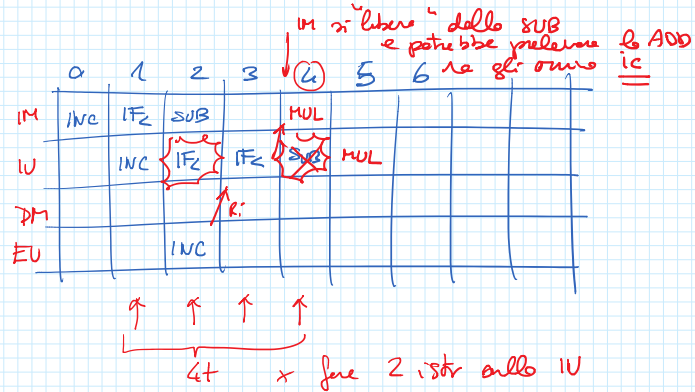 IM si "libera" dallo SUB
e potrebbe prelevare la ADD
ma gli arriva ic
0 1 2 3 4 5 6
IM INC IF< SUB MUL
IU INC IF< IF< SUB MUL
DM Ri
EU INC
4t x fare 2 istr sullo IU